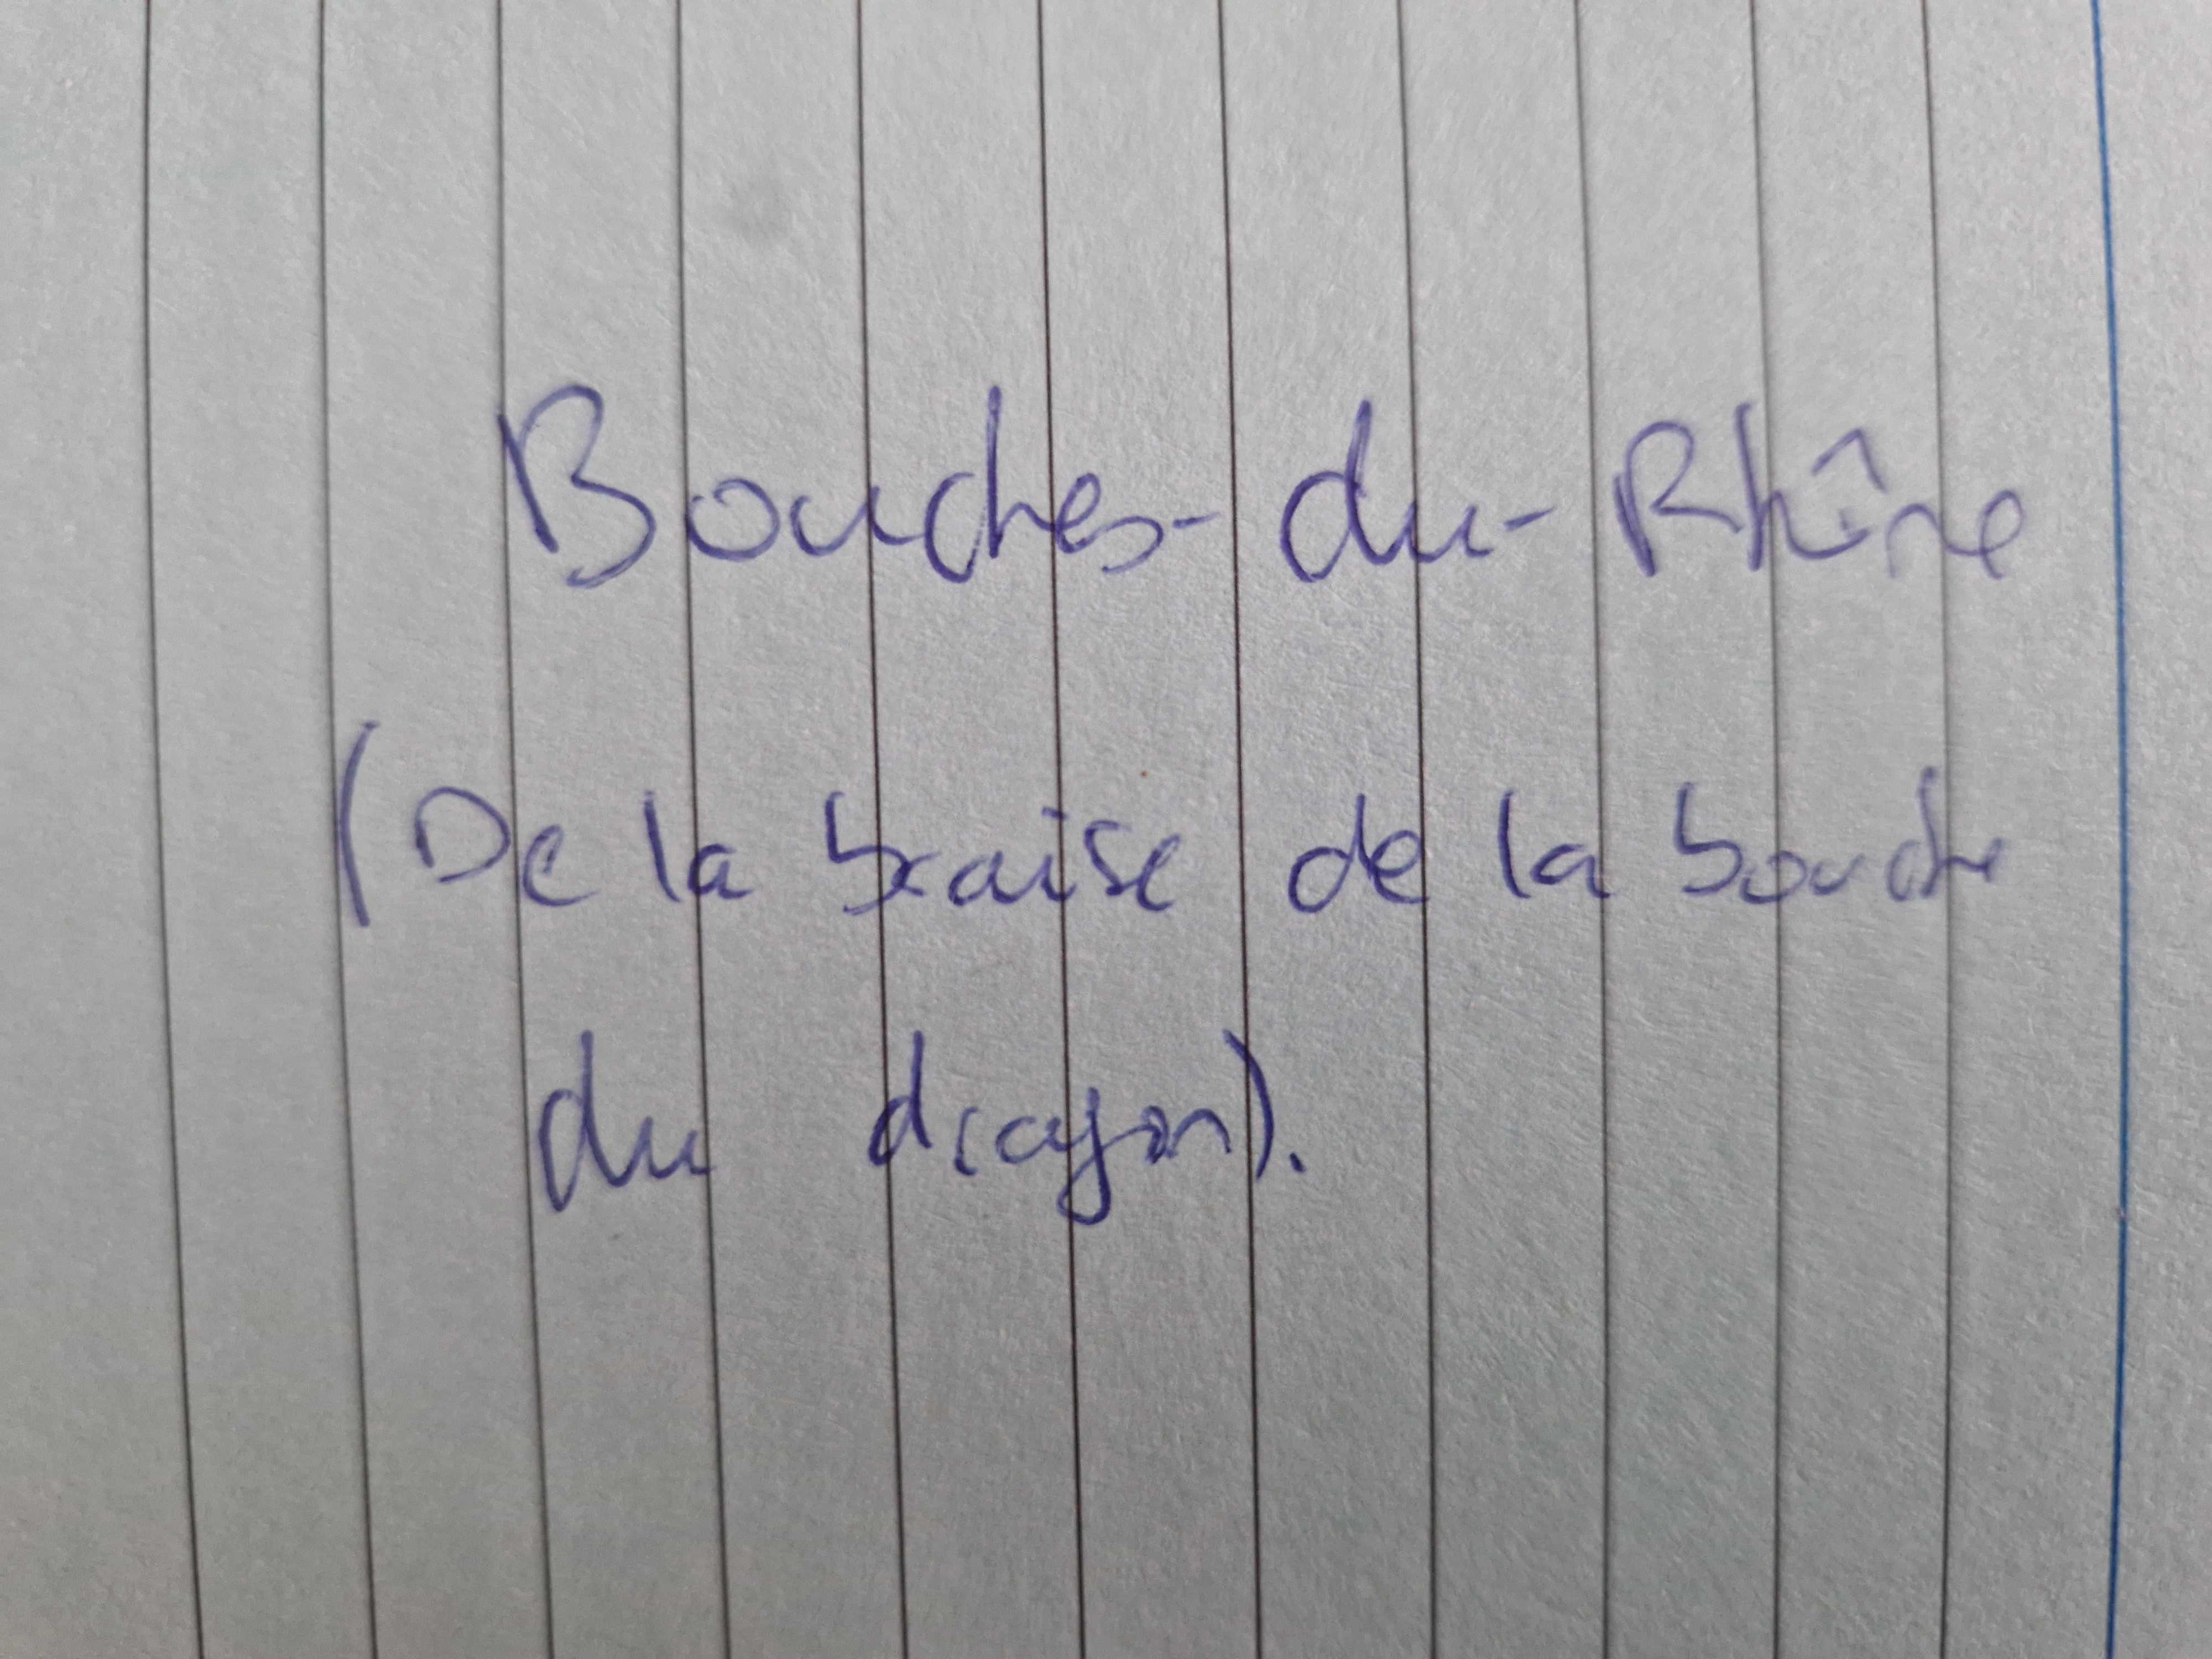 Bouches-du-Rhône
(De la braise de la bouche
du dragon).